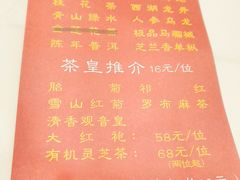 桂花茶 西湖龙井
青山绿水 人参乌龙
极品马骝搣
陈年普洱 芝兰香单枞
茶皇推介 16元/位
胎菊 祁红
雪山红菊 罗布麻茶
清香观音皇
大红袍: 58元/位
有机灵芝茶: 68元/位
(两位起)